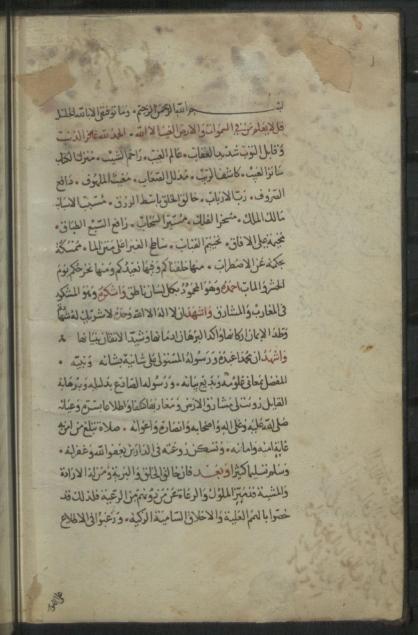 بسم الله الرحمن الرحيم . وما توفيقي الا بالله الجليل
قل لا يعلم من في السموات والارض الغيب الا الله . الحمد لله غافر الذنب
وقابل التوب شديد العقاب . عالم الغيب . راحم الشيب . منزل الكتاب
ساتر العيب . كاشف الريب . مذلل الصعاب . مغيث الملهوف . دافع
الصروف . رب الارباب . خالق الخلق باسط الرزق . مسبب الاسباب
مالك الملك . مسخر الفلك . مسير السحاب . رافع السبع الطباق .
على الافاق . القباب . ساطح الغبرا على متن الماء . ممسكة
بحكمه عن الاضطراب . منها خلقناكم وفيها نعيدكم ومنها نخرجكم يوم
الحشر والماب احمده وهو المحمود بكل لسان ناطق واشكره وهو المشكور
في المغارب والمشارق واشهد ان لا اله الا الله وحده لا شريك له شهادة
وطد الايمان اركانها واكد البرهان وشيد الاتقان بنيانها
واشهد ان محمدا عبده ورسوله المستولى على شانيه بشانه . ونبيه
المفضل بمعاني علومه وبديع بيانه . ورسوله الصادع بدليله وبرهانه
القايل زويت لي مشارق الارض ومغاربها واطلاعا بسره وعيانه
صلى الله عليه وعلى اله واصحابه وانصاره واعوانه . صلاة تبلغ من
غاية امنه وامانه . وتسكن روعته في الدارين بعفو الله وغفرانه .
وسلم تسليما كثيرا وبعد فان خالق الخلق والبرية ومن له الارادة
والمشية الملوك والرعاة عن من دونهم من الرعية فلذلك قد
خصوا بالهمم العلية والاخلاق السامية الزكية . ورغبوا في الاطلاع
على